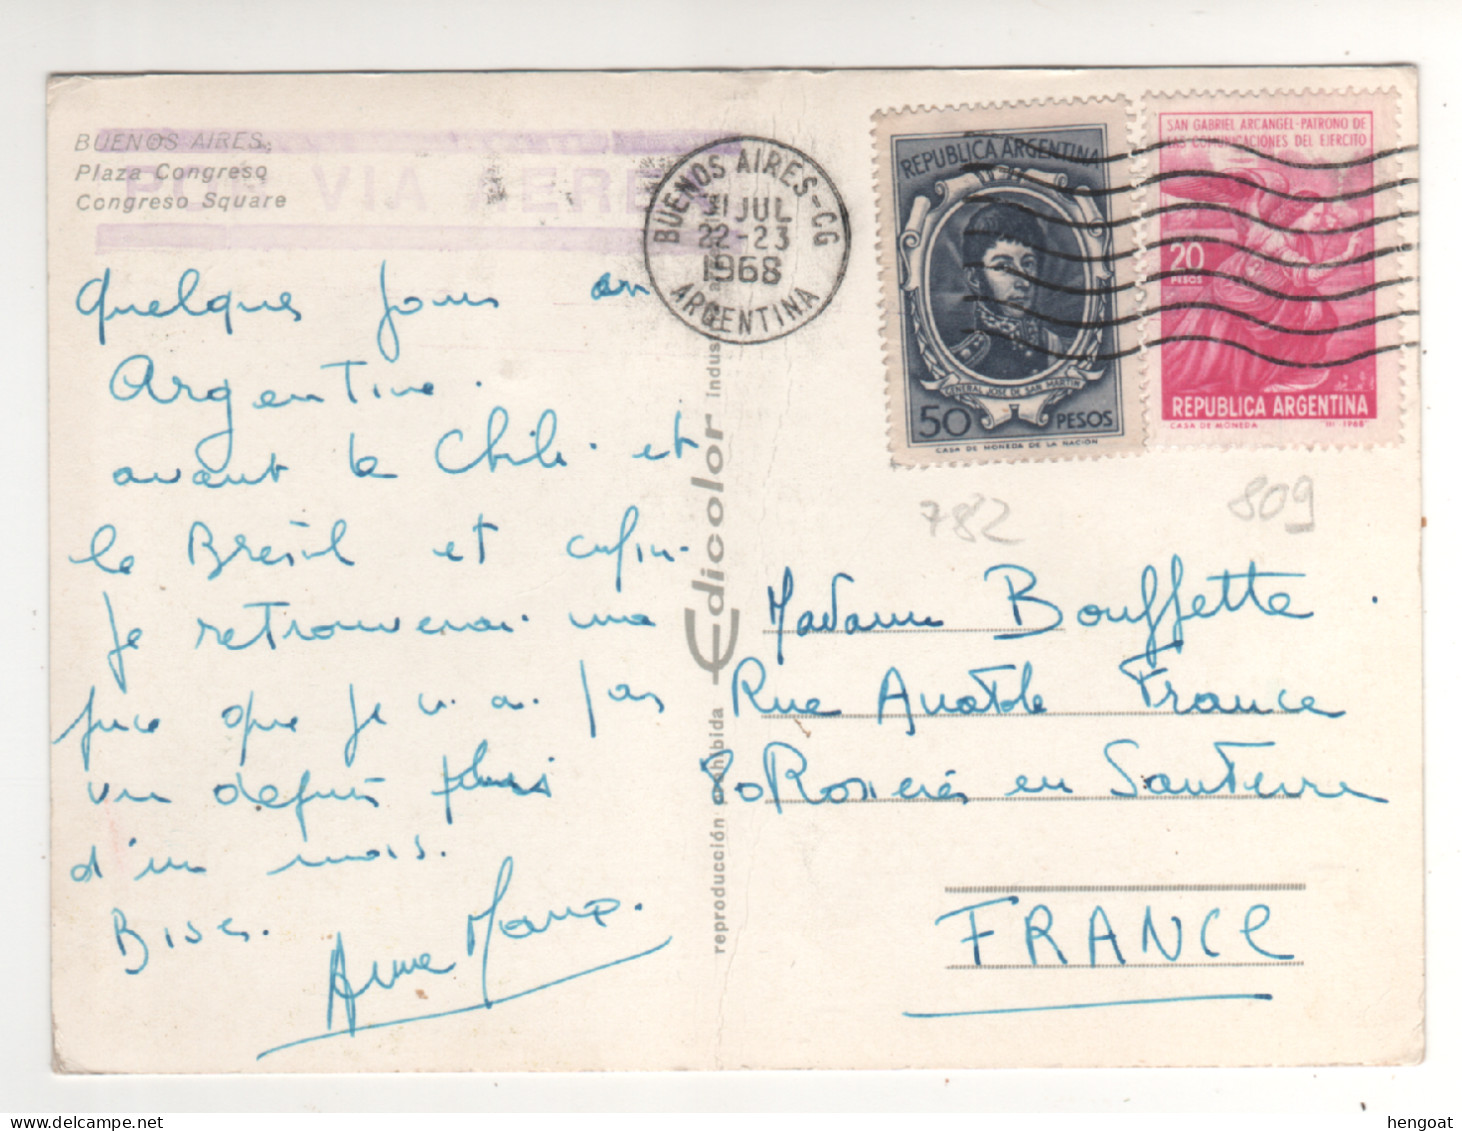 BUENOS AIRES,
Plaza Congreso
Congreso Square
POR VIA AEREA
BUENOS AIRES-CG
31 JUL
22-23
1968
ARGENTINA
REPUBLICA ARGENTINA
GENERAL JOSE DE SAN MARTIN
50 PESOS
CASA DE MONEDA DE LA NACION
SAN GABRIEL ARCANGEL-PATRONO DE
LAS COMUNICACIONES DEL EJERCITO
20
PESOS
REPUBLICA ARGENTINA
CASA DE MONEDA III-1968
782
809
Quelques jours en
Argentine.
avant le Chili. et
le Brésil et enfin.
Je retrouverai ma
puce que je n'ai pas
vu depuis plus
d'un mois.
Bises.
Anne Marie.
Edicolor
reproducción prohibida
indus
Madame Bouffette.
Rue Anatole France
80 Rosières en Santerre
FRANCE
hengoat